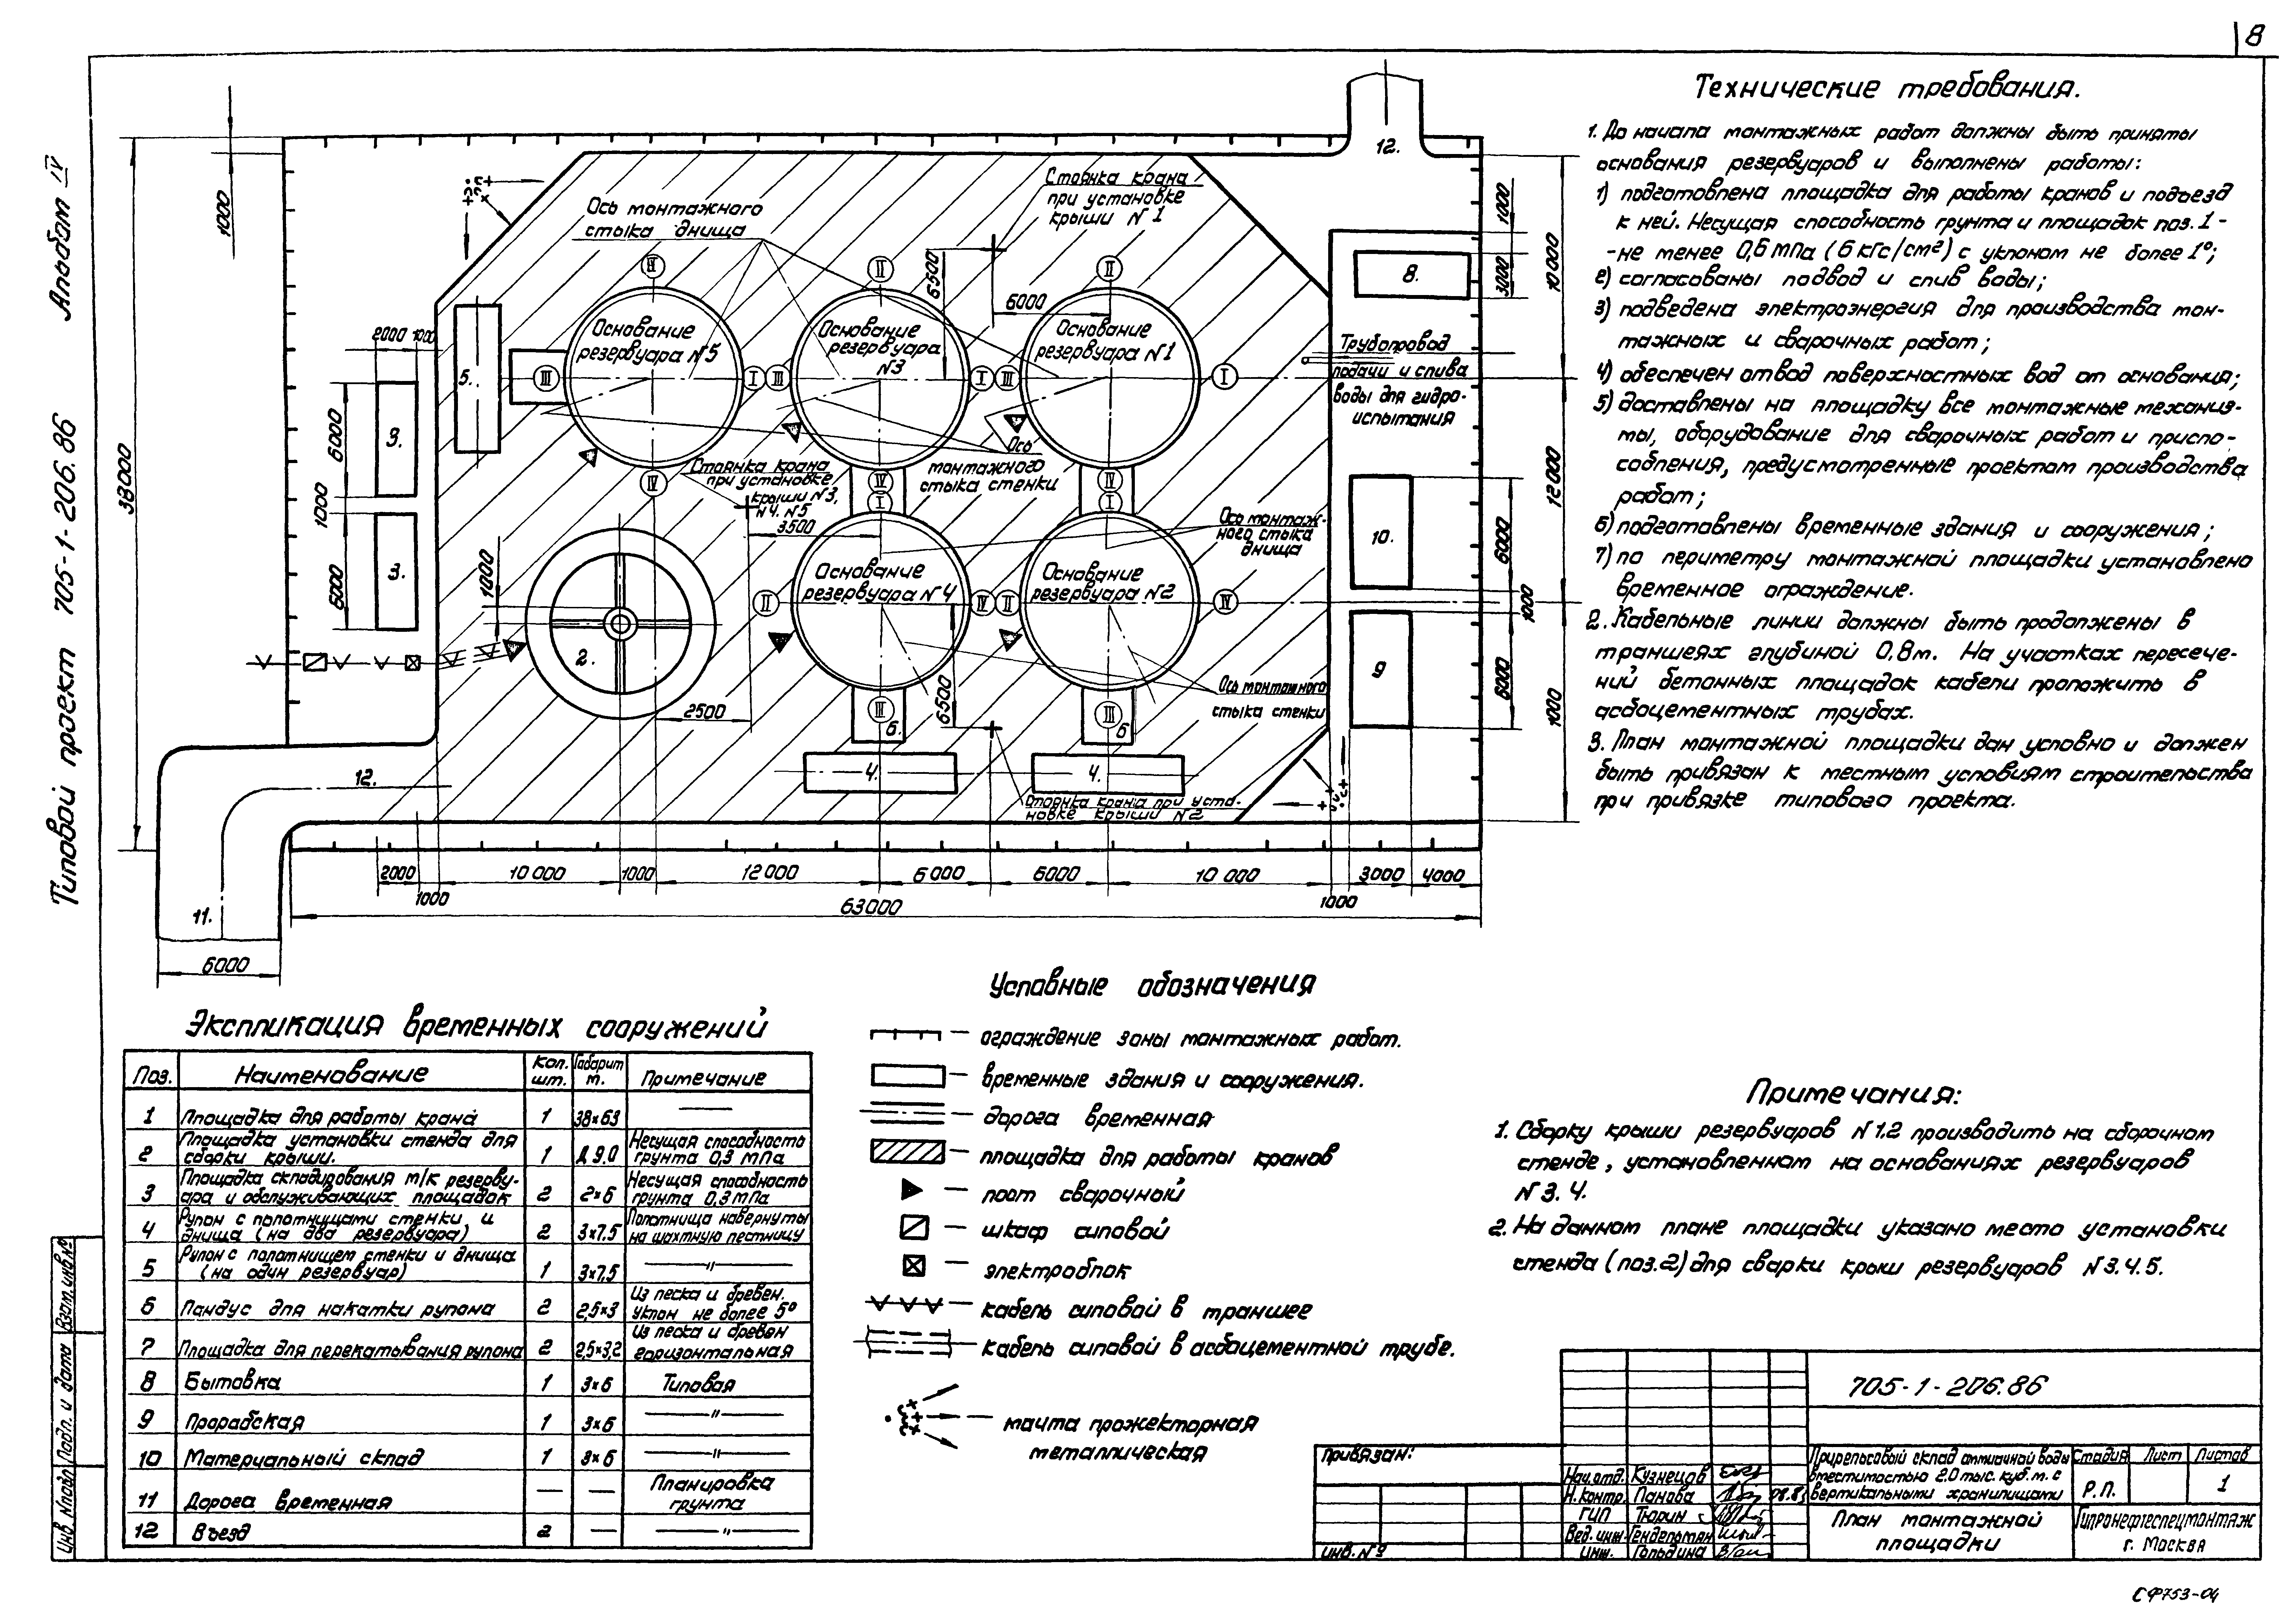 8
Типовой проект 705-1-206.86 Альбом IV
Технические требования.
1. До начала монтажных работ должны быть приняты
основания резервуаров и выполнены работы:
1) подготовлена площадка для работы кранов и подъезд
к ней. Несущая способность грунта и площадок поз. 1 -
- не менее 0,6 МПа (6 кгс/см²) с уклоном не более 1°;
2) согласованы подвод и слив воды;
3) подведена электроэнергия для производства мон-
тажных и сварочных работ;
4) обеспечен отвод поверхностных вод от основания;
5) доставлены на площадку все монтажные механиз-
мы, оборудование для сварочных работ и приспо-
собления, предусмотренные проектом производства
работ;
6) подготовлены временные здания и сооружения;
7) по периметру монтажной площадки установлено
временное ограждение.
2. Кабельные линии должны быть продолжены в
траншеях глубиной 0,8м. На участках пересече-
ний бетонных площадок кабели проложить в
асбоцементных трубах.
3. План монтажной площадки дан условно и должен
быть привязан к местным условиям строительства
при привязке типового проекта.
12.
Стоянка крана
при установке
крыши N 1
Ось монтажного
стыка днища
1000
38000
6500
6000
1000
3000
10 000
8.
II II II
Основание
резервуара N5
Основание
резервуара
N3
Основание
резервуара N1
Трубопровод
подачи и слива
воды для гидро-
испытания
2000 1000
5.
III I III I III I
6000
3.
1000
3.
6000
Ось
монтажного
стыка стенки
Стоянка крана
при установке
крыши N3,
N4, N5
3500
IV IV IV
I I
Ось монтаж-
ного стыка
днища
10.
12 000
6000
1000
1000
Основание
резервуара N4
Основание
резервуара N2
II IV II IV
2.
2500
6500
9
6000
1000
Ось монтажного
стыка стенки
III III
6. 6
4. 4.
12.
Стоянка крана при уста-
новке крыши N2
2000 10 000 1000 12 000 6 000 6000 10 000 3000 4000
1000 63000 1000
11.
6000
Экспликация временных сооружений
Поз. Наименование Кол. шт. Габарит м. Примечание
1 Площадка для работы крана 1 38×63 —
2 Площадка установки стенда для сборки крыши. 1 Д 9.0 Несущая способность грунта 0,3 МПа
3 Площадка складирования м/к резерву-ара и обслуживающих площадок 2 2×6 Несущая способность грунта 0,3 МПа
4 Рулон с полотнищами стенки и днища (на два резервуара) 2 3×7.5 Полотнища навернуты на шахтную лестницу
5 Рулон с полотнищем стенки и днища (на один резервуар) 1 3×7,5 —"—
6 Пандус для накатки рулона 2 2,5×3 Из песка и бревен. Уклон не более 5°
7 Площадка для перекатывания рулона 2 2,5×3,2 Из песка и бревен горизонтальная
8 Бытовка 1 3×6 Типовая
9 Прорабская 1 3×6 —"—
10 Материальный склад 1 3×6 —"—
11 Дорога временная — — Планировка грунта
12 Въезд 2 — —"—
Условные обозначения
— ограждение зоны монтажных работ.
— временные здания и сооружения.
— дорога временная
— площадка для работы кранов
— пост сварочный
— шкаф силовой
— электроблок
— кабель силовой в траншее
— кабель силовой в асбоцементной трубе.
— мачта прожекторная
металлическая
Примечания:
1. Сборку крыши резервуаров N 1.2 производить на сборочном
стенде, установленном на основаниях резервуаров
N 3. 4.
2. На данном плане площадки указано место установки
стенда (поз.2) для сварки крыш резервуаров N 3. 4. 5.
Привязан:
Инв. №
Нач.отд. Кузнецов
Н.контр. Панова
ГИП Тюрин
Вед. инж. Гендельман
Инж. Гольдина
705-1-206.86
Прирельсовый склад аммиачной воды
вместимостью 2.0 тыс. куб. м. с
вертикальными хранилищами
Стадия Лист Листов
Р.П. 1
План монтажной
площадки
Гипронефтеспецмонтаж
г. Москва
Инв № подл Подп. и дата Взам. инв. №
СФ753-04